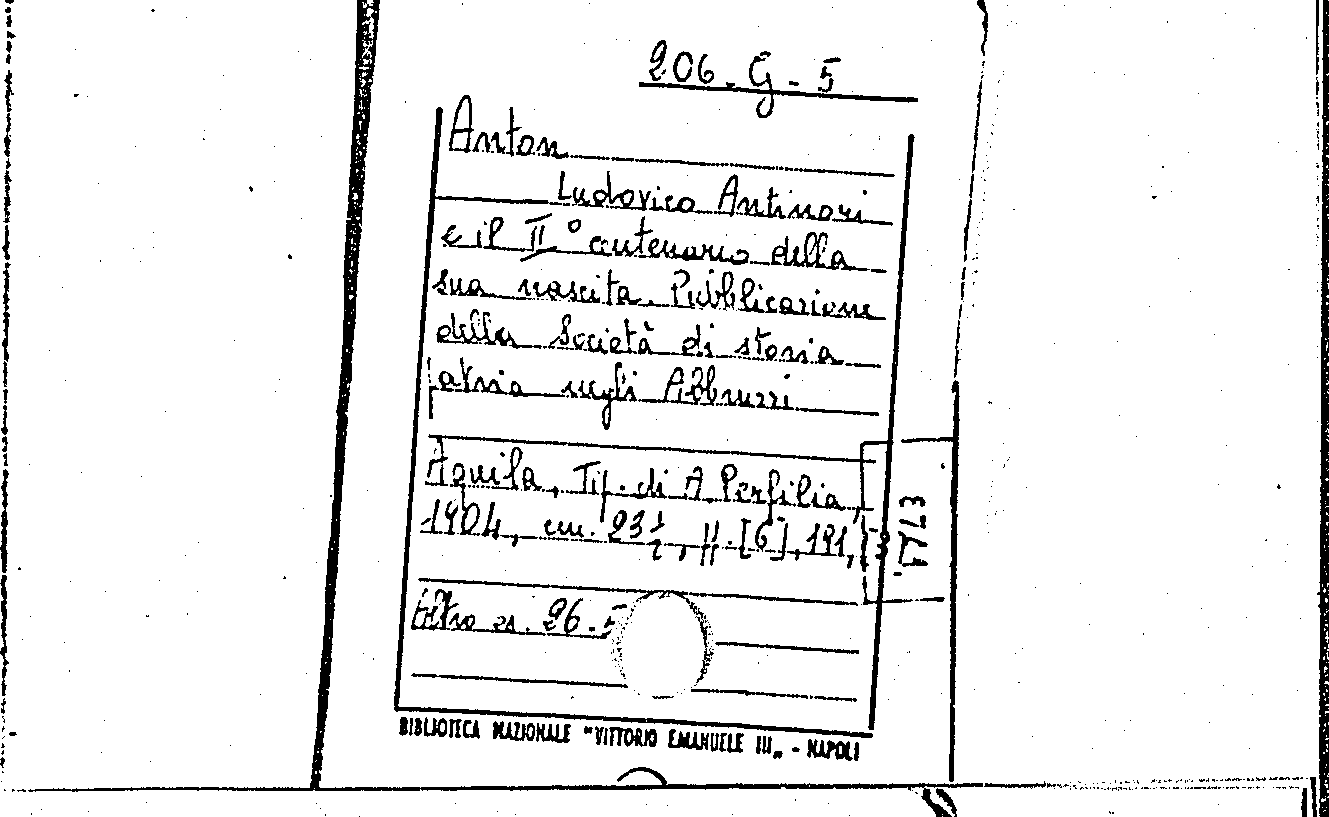 206. G - 5
Anton
Ludovico Antinori
e il II° centenario della
sua nascita. Pubblicazione
della Società di storia
patria negli Abbruzzi
Aquila, Tip. di A. Perfilia,
1904, cm. 23½, pp. [6], 191,
Altro es. 26.5
BIBLIOTECA NAZIONALE "VITTORIO EMANUELE III„ - NAPOLI